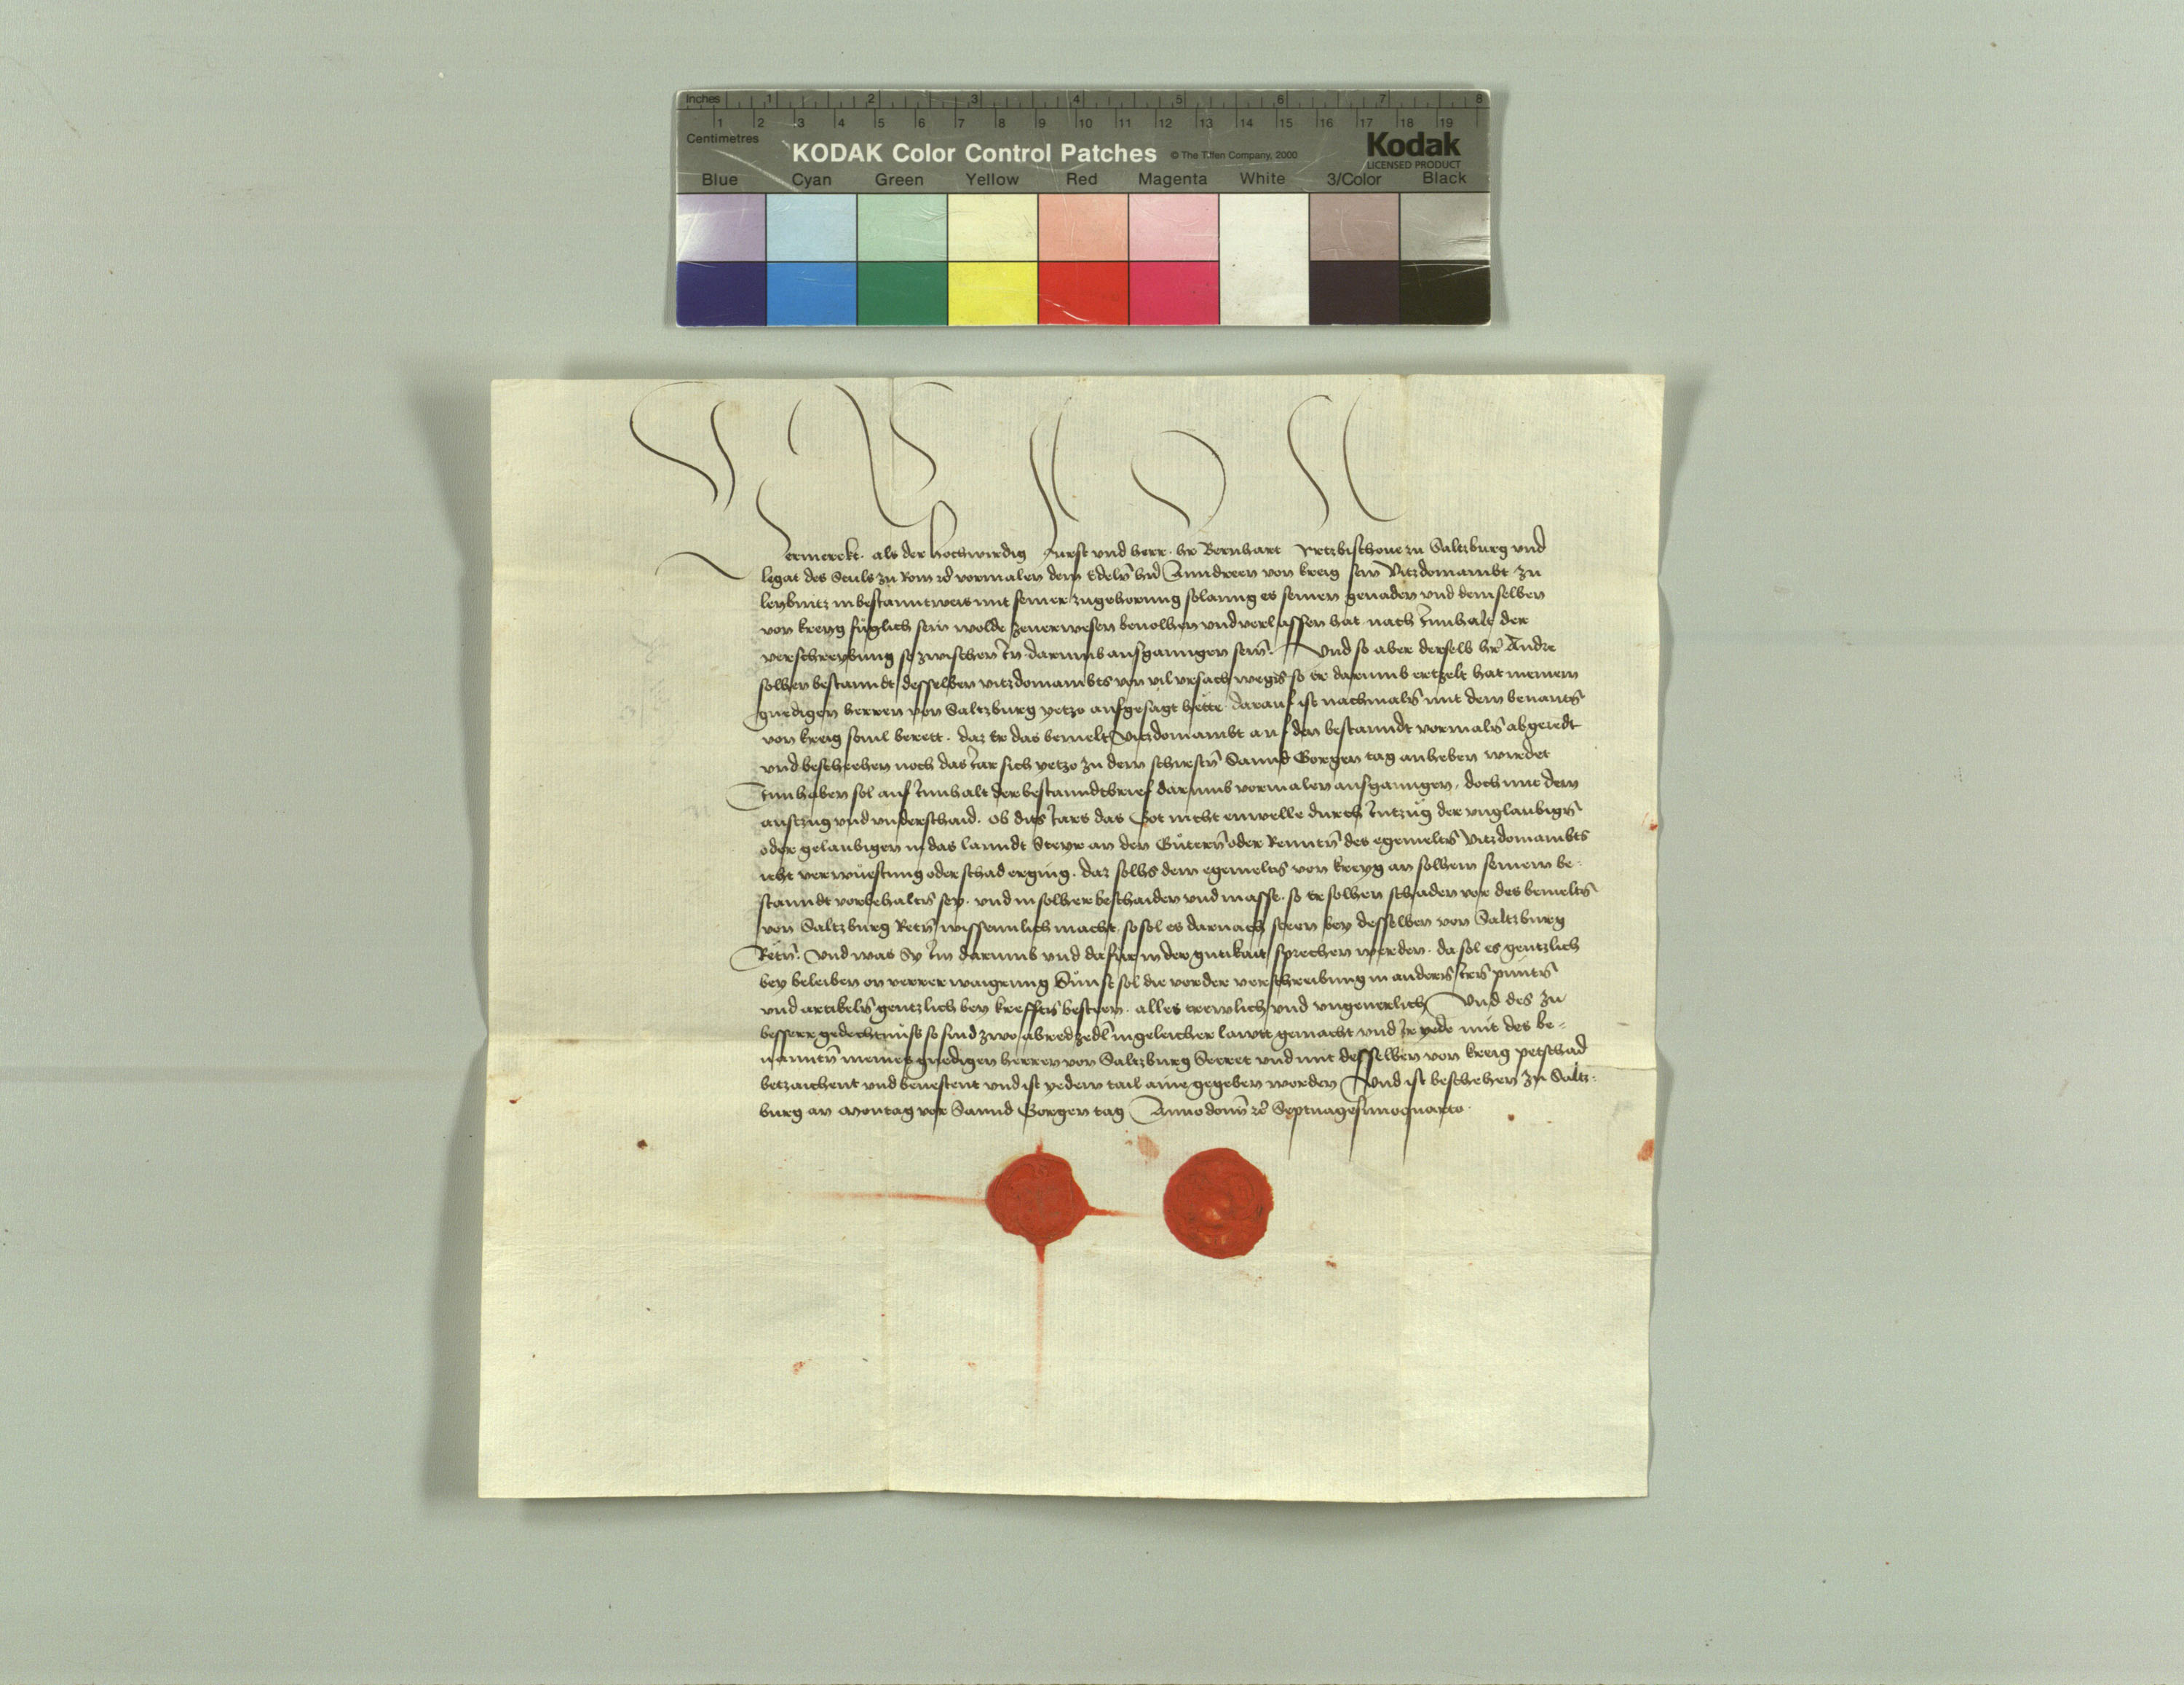 Inches 1 2 3 4 5 6 7 8
1 2 3 4 5 6 7 8 9 10 11 12 13 14 15 16 17 18 19
Centimetres
KODAK Color Control Patches © The Tiffen Company, 2000 Kodak
LICENSED PRODUCT
Blue Cyan Green Yellow Red Magenta White 3/Color Black
Vermerckt. als der hochwirdig Furst vnd herr. her Bernhart Ertzbischoue zu Saltzburg vnd
legat des Stuls zu Rom vormalen dem Edeln Anndreen von kreig sein Vitzdomambt zu
leybnitz in bestanntweis mit seiner zugehorung solanng es seinen genaden vnd demselben
von kreyg fuglich sein wolde Innzerwesen beuolhen vnd verlassen hat nach Innhalt der
verschreybung so zwischen In darumb ausganngen sein. Vnd so aber derselb her Andre
solhen bestanndt desselben vitzdomambts von vil vrsach wegen so er darumb ertzelt hat meinem
gnedigen herren von Saltzburg yetzo aufgesagt hette darauf ist nachmaln mit dem benanten
von kreig souil berett. daz Er das bemelt Vitzdomambt auf den bestanndt vormaln abgeredt
vnd beschehen noch das Iar sich yetzo zu dem schiristen Sannd Gorgen tag anheben wirdet
Innhaben sol auf Innhalt der bestanndtbrief darumb vormalen ausganngen. doch mit dem
auszug vnd vnderschaid. ob dits Iars das Got nicht enwelle durch Intzug der vnglaubigen
oder gelaubigen in das lanndt Steyr an den Gutern oder Renntten des egemelten Vitzdomambts
icht verwüestung oder schad erging. daz solhs dem egemelten von kreyg an solhem seinem be-
stanndt vorbehalten sey. vnd in solher beschaiden vnd masse. so er solhen schaden vor des bemelten
von Saltzburg Reten wissenntlich macht. so sol es darnach steen bey desselben von Saltzburg
Reten. Vnd was Sy Im darumb vnd dafur in der gutikait sprechen werden. da sol es genntzlich
bey beleiben on verrer waigrung Sünst sol die vorder verschreibung in andern Iren punten
vnd artikeln genntzlich bey krefften besteen. alles trewlich vnd vngeuerlich Vnd des zu
besserr gedechtnüss so sind zwo abredzedl in geleicher lawtt gemacht vnd Ir yede mit des be-
nannten meines gnedigen herren von Saltzburg Secret vnd mit desselben von kreig petschad
betzaichent vnd beuestent vnd ist yedem tail aine gegeben worden Vnd ist beschehen zu Saltz-
burg an Montag vor Sannd Gorgen tag Anno domini Septuagesimoquarto.